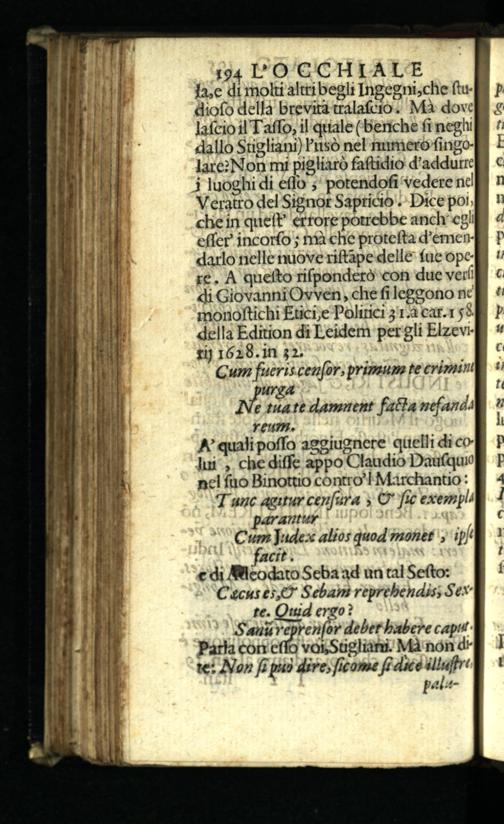 194 L'OCCHIALE
ſa, e di molti altri begli Ingegni, che ſtu-
dioſo della brevità tralaſcio. Mà dove
laſcio il Taſſo, il quale (benche ſi neghi
dallo Stigliani) l'usò nel numero ſingo-
lare? Non mi pigliarò faſtidio d'addurre
i luoghi di eſſo, potendoſi vedere nel
Veratro del Signor Sapricio. Dice poi,
che in queſt' errore potrebbe anch' egli
eſſer' incorſo; mà che proteſta d'emen-
darlo nelle nuove riſtãpe delle ſue ope-
re. A queſto riſponderò con due verſi
di Giovanni Ovven, che ſi leggono ne'
monoſtichi Etici, e Politici 31. à car. 158.
della Edition di Leidem per gli Elzevi-
rij 1628. in 32.
Cum fueris cenſor, primum te crimini
purga
Ne tua te damnent facta nefanda
reum.
A' quali poſſo aggiugnere quelli di co-
lui, che diſſe appo Claudio Dauſquio
nel ſuo Binottio contro'l Marchantio:
Tunc agitur cenſura, & ſic exempla
parantur
Cum Judex alios quod monet, ipſe
facit.
e di Adeodato Seba ad un tal Seſto:
Cæcus es, & Sebam reprehendis, Sex-
te. Quid ergo?
Sanũ reprenſor debet habere caput.
Parla con eſſo voi, Stigliani. Mà non di-
te: Non ſi può dire, ſicome ſi dice illuſtre,
palu-